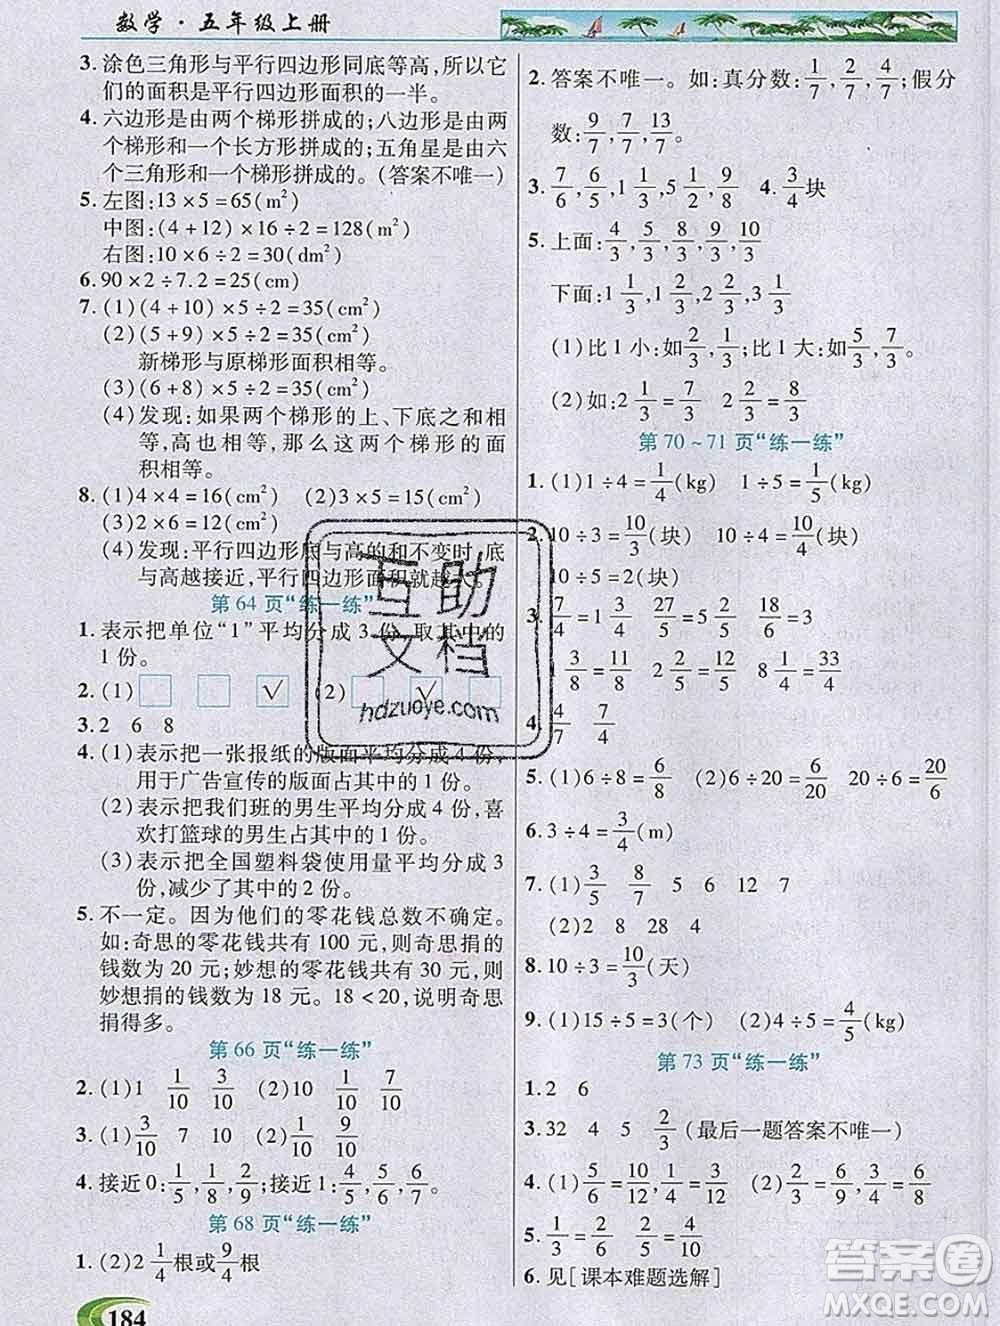 数学·五年级上册
3. 涂色三角形与平行四边形同底等高,所以它
们的面积是平行四边形面积的一半。
4. 六边形是由两个梯形拼成的;八边形是由两
个梯形和一个长方形拼成的;五角星是由三
个三角形和一个梯形拼成的。(答案不唯一)
5. 左图:13×5=65(m²)
中图:(4+12)×16÷2=128(m²)
右图:10×6÷2=30(dm²)
6. 90×2÷7.2=25(cm)
7. (1)(4+10)×5÷2=35(cm²)
(2)(5+9)×5÷2=35(cm²)
新梯形与原梯形面积相等。
(3)(6+8)×5÷2=35(cm²)
(4)发现:如果两个梯形的上、下底之和相
等,高也相等,那么这两个梯形的面
积相等。
8. (1)4×4=16(cm²) (2)3×5=15(cm²)
(3)2×6=12(cm²)
(4)发现:平行四边形底与高的和不变时,底
与高越接近,平行四边形面积就越大。
第 64 页“练一练”
1. 表示把单位“1”平均分成 3 份,取其中的
1 份。
2. (1)□ □ √ (2)□ √ □
3. 2 6 8
4. (1)表示把一张报纸的版面平均分成 4 份,
用于广告宣传的版面占其中的 1 份。
(2)表示把我们班的男生平均分成 4 份,喜
欢打篮球的男生占其中的 1 份。
(3)表示把全国塑料袋使用量平均分成 3
份,减少了其中的 2 份。
5. 不一定。因为他们的零花钱总数不确定。
如:奇思的零花钱共有 100 元,则奇思捐的
钱数为 20 元;妙想的零花钱共有 30 元,则
妙想捐的钱数为 18 元。18<20,说明奇思
捐得多。
第 66 页“练一练”
2. (1)1 1/10 3/10 (2)10 1/10 9/10
3. (1)3/10 7 10 (2)1/10 9/10
4. 接近 0:1/5,1/8,2/9;接近 1:4/5,5/6,6/7。
第 68 页“练一练”
1. (2)2 1/4根或9/4根
184
2. 答案不唯一。如:真分数:1/7,2/7,4/7;假分
数:9/7,7/7,13/7。
3. 7/6,6/5,1 1/5,5 1/2,9/8 4. 3/4块
5. 上面:4/3,5/3,8/3,9/3,10/3
下面:1/3,1 1/3,2 2/3,3 1/3
(1)比 1 小:如2/3,1/3;比 1 大:如5/3,7/3。
(2)如:2 1/3=7/3 2 2/3=8/3
第 70~71 页“练一练”
1. (1)1÷4=1/4(kg) 1÷5=1/5(kg)
2. 10÷3=10/3(块) 10÷4=10/4(块)
10÷5=2(块)
3. 7/4=1 3/4 27/5=5 2/5 18/6=3
1 3/8=11/8 2 2/5=12/5 8 1/4=33/4
4. 4/7 7/4
5. (1)6÷8=6/8 (2)6÷20=6/20 20÷6=20/6
6. 3÷4=3/4(m)
7. (1)3/5 8/7 5 6 12 7
(2)2 28 4
8. 10÷3=10/3(天)
9. (1)15÷5=3(个) (2)4÷5=4/5(kg)
第 73 页“练一练”
1. 2 6
3. 32 4 5 2/3(最后一题答案不唯一)
4. (1)5/6=10/12,1/4=3/12 (2)2/3=6/9,3/4=6/8
5. 1/3=2/6 4/5=4/5
6. 见[课本难题选解]
互助
文档
hdzuoye.com
答案圈
MXQE.COM